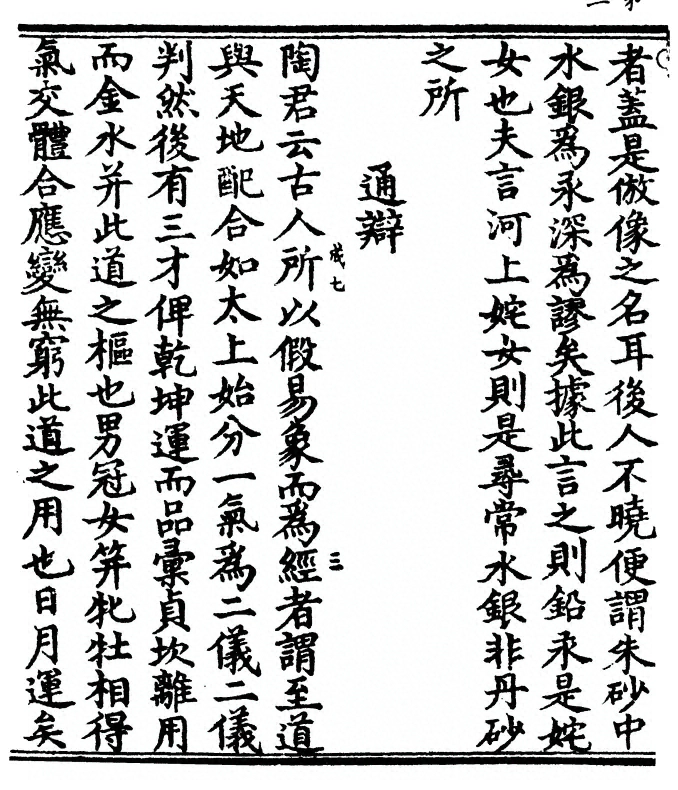 者蓋是倣像之名耳後人不曉便謂朱砂中
水銀爲汞深爲謬矣據此言之則鉛汞是姹
女也夫言河上姹女則是尋常水銀非丹砂
之所
通辯
陶君云古人所以假易象而爲經者謂至道
與天地配合如太上始分一氣爲二儀二儀
判然後有三才俾乾坤運而品彙貞坎離用
而金水并此道之樞也男冠女笄牝牡相得
氣交體合應變無窮此道之用也日月運矣
三